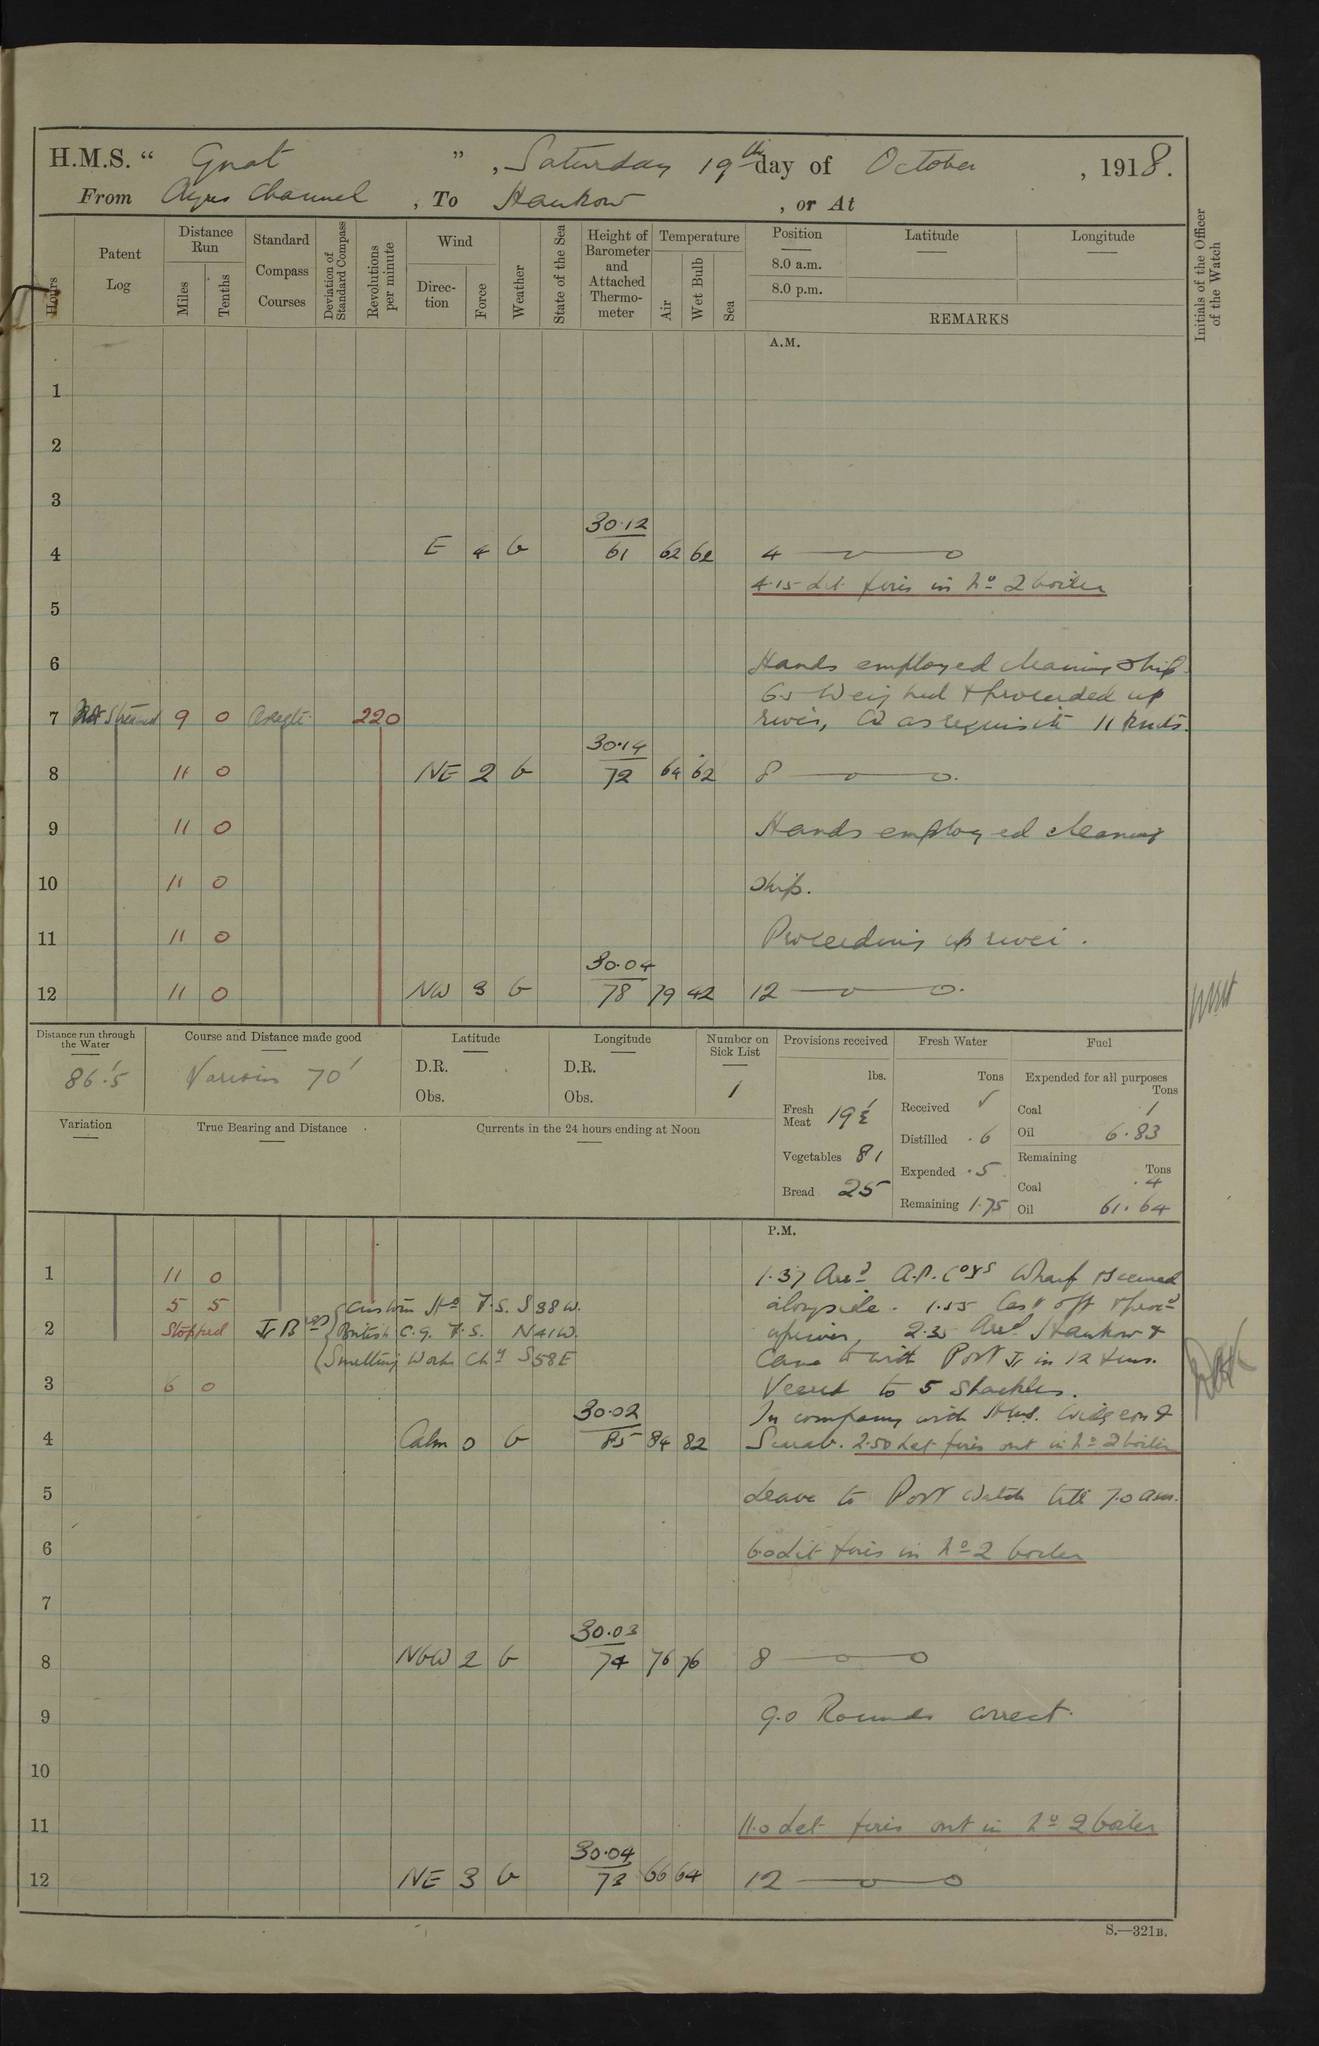 H.M.S. " Gnat " , Saturday 19th day of October , 1918.
From Ayres Channel , To Hankow , or At
Hours
Patent Log
Distance Run
Miles
Tenths
Standard Compass Courses
Deviation of Standard Compass
Revolutions per minute
Wind
Direction
Force
Weather
State of the Sea
Height of Barometer and Attached Thermometer
Temperature
Air
Wet Bulb
Sea
Position
8.0 a.m.
8.0 p.m.
Latitude
Longitude
REMARKS
Initials of the Officer of the Watch
A.M.
1
2
3
30.12
4 E 4 b 61 62 62 4
4.15 Lit fires in No 2 boiler
5
6 Hands employed cleaning ship.
6.5 Weighed & proceeded up
7 Not Streamed 9 0 220 river, Co as requisite 11 knots.
30.14
8 11 0 NE 2 b 72 64 62 8
9 11 0 Hands employed cleaning
10 11 0 ship.
11 11 0 Proceeding up river.
30.04
12 11 0 NW 3 b 78 79 42 12
Distance run through the Water
86.5
Course and Distance made good
Various 70'
Latitude
D.R.
Obs.
Longitude
D.R.
Obs.
Number on Sick List
1
Provisions received
lbs.
Fresh Meat 19½
Vegetables 81
Bread 25
Fresh Water
Tons
Received √
Distilled .6
Expended .5
Remaining 1.75
Fuel
Expended for all purposes
Tons
Coal .1
Oil 6.83
Remaining
Tons
Coal .4
Oil 61.64
Variation
True Bearing and Distance
Currents in the 24 hours ending at Noon
P.M.
1 11 0 1.37 Arrd A.P. Coys Wharf & secured
5 5 Custom Ho F.S. S38W. alongside. 1.55 Cast off & procd
2 Stopped British C.G. F.S. N41W. upriver, 2.35 Arrd Hankow &
Smelting Works Chy S58E Came to with Port Ir in 12 fms.
3 6 0 Veered to 5 shackles.
30.02 In company with HMS. Widgeon &
4 Calm 0 b 85 84 82 Scarab. 2.50 Let fires out in No 2 boiler
5 Leave to Port Watch till 7.0 am.
6 6.0 Lit fires in No 2 boiler
7
30.03
8 NbW 2 b 74 76 76 8
9 9.0 Rounds correct.
10
11 11.0 Let fires out in No 2 boiler
30.04
12 NE 3 b 73 66 64 12
S.—321B.